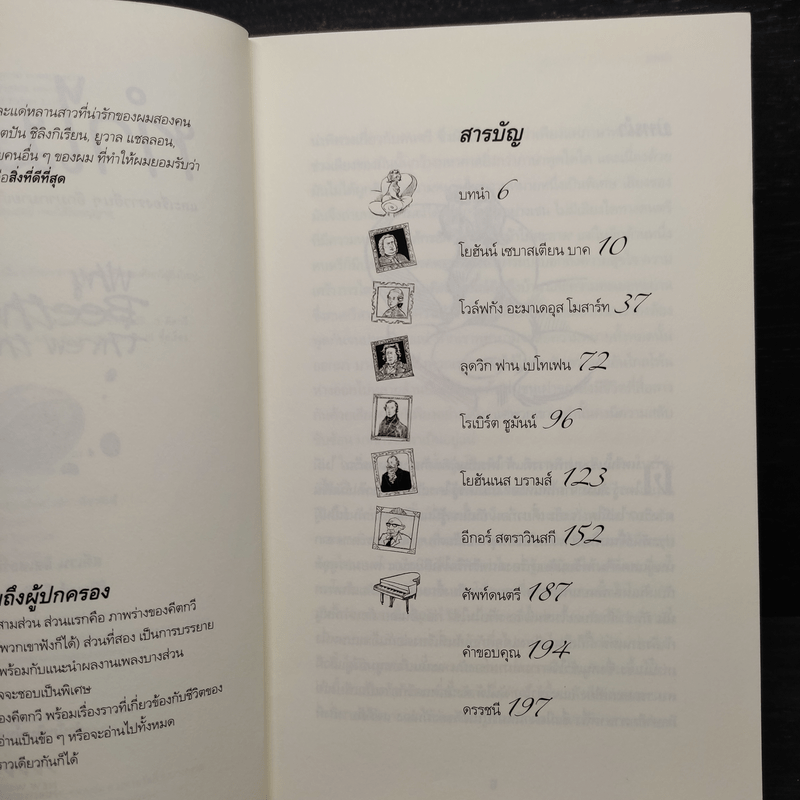 ละแด่หลานสาวที่น่ารักของผมสองคน
ตปัน ชิลิงกิเรียน, ยูวาล แชลลอน,
คนอื่น ๆ ของผม ที่ทำให้ผมยอมรับว่า
อสิ่งที่ดีที่สุด
ถึงผู้ปกครอง
สามส่วน ส่วนแรกคือ ภาพร่างของคีตกวี
พวกเขาฟังก็ได้) ส่วนที่สอง เป็นการบรรยาย
พร้อมกับแนะนำผลงานเพลงบางส่วน
จจะชอบเป็นพิเศษ
องคีตกวี พร้อมเรื่องราวที่เกี่ยวข้องกับชีวิตของ
อ่านเป็นข้อ ๆ หรือจะอ่านไปทั้งหมด
ราวเดียวกันก็ได้
สารบัญ
บทนำ 6
โยฮันน์ เซบาสเตียน บาค 10
โวล์ฟกัง อะมาเดอุส โมสาร์ท 37
ลุดวิก ฟาน เบโทเฟน 72
โรเบิร์ต ชูมันน์ 96
โยฮันเนส บรามส์ 123
อีกอร์ สตราวินสกี 152
ศัพท์ดนตรี 187
คำขอบคุณ 194
ดรรชนี 197